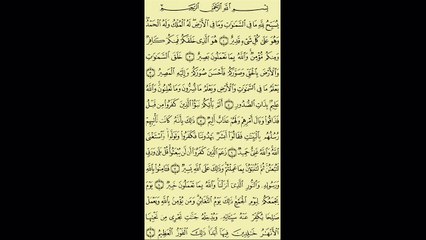 بِسْمِ اللَّهِ الرَّحْمَٰنِ الرَّحِيمِ
يُسَبِّحُ لِلَّهِ مَا فِي السَّمَاوَاتِ وَمَا فِي الْأَرْضِ لَهُ الْمُلْكُ وَلَهُ الْحَمْدُ
وَهُوَ عَلَىٰ كُلِّ شَيْءٍ قَدِيرٌ ۝ هُوَ الَّذِي خَلَقَكُمْ فَمِنكُمْ كَافِرٌ
وَمِنكُم مُّؤْمِنٌ وَاللَّهُ بِمَا تَعْمَلُونَ بَصِيرٌ ۝ خَلَقَ السَّمَاوَاتِ
وَالْأَرْضَ بِالْحَقِّ وَصَوَّرَكُمْ فَأَحْسَنَ صُوَرَكُمْ وَإِلَيْهِ الْمَصِيرُ ۝
يَعْلَمُ مَا فِي السَّمَاوَاتِ وَالْأَرْضِ وَيَعْلَمُ مَا تُسِرُّونَ وَمَا تُعْلِنُونَ وَاللَّهُ
عَلِيمٌ بِذَاتِ الصُّدُورِ ۝ أَلَمْ يَأْتِكُمْ نَبَأُ الَّذِينَ كَفَرُوا مِن قَبْلُ
فَذَاقُوا وَبَالَ أَمْرِهِمْ وَلَهُمْ عَذَابٌ أَلِيمٌ ۝ ذَٰلِكَ بِأَنَّهُ كَانَت تَّأْتِيهِمْ
رُسُلُهُم بِالْبَيِّنَاتِ فَقَالُوا أَبَشَرٌ يَهْدُونَنَا فَكَفَرُوا وَتَوَلَّوا وَّاسْتَغْنَى
اللَّهُ وَاللَّهُ غَنِيٌّ حَمِيدٌ ۝ زَعَمَ الَّذِينَ كَفَرُوا أَن لَّن يُبْعَثُوا قُلْ بَلَىٰ وَرَبِّي
لَتُبْعَثُنَّ ثُمَّ لَتُنَبَّؤُنَّ بِمَا عَمِلْتُمْ وَذَٰلِكَ عَلَى اللَّهِ يَسِيرٌ ۝ فَآمِنُوا بِاللَّهِ
وَرَسُولِهِ وَالنُّورِ الَّذِي أَنزَلْنَا وَاللَّهُ بِمَا تَعْمَلُونَ خَبِيرٌ ۝ يَوْمَ
يَجْمَعُكُمْ لِيَوْمِ الْجَمْعِ ذَٰلِكَ يَوْمُ التَّغَابُنِ وَمَن يُؤْمِن بِاللَّهِ وَيَعْمَلْ
صَالِحًا يُكَفِّرْ عَنْهُ سَيِّئَاتِهِ وَيُدْخِلْهُ جَنَّاتٍ تَجْرِي مِن تَحْتِهَا
الْأَنْهَارُ خَالِدِينَ فِيهَا أَبَدًا ذَٰلِكَ الْفَوْزُ الْعَظِيمُ ۝